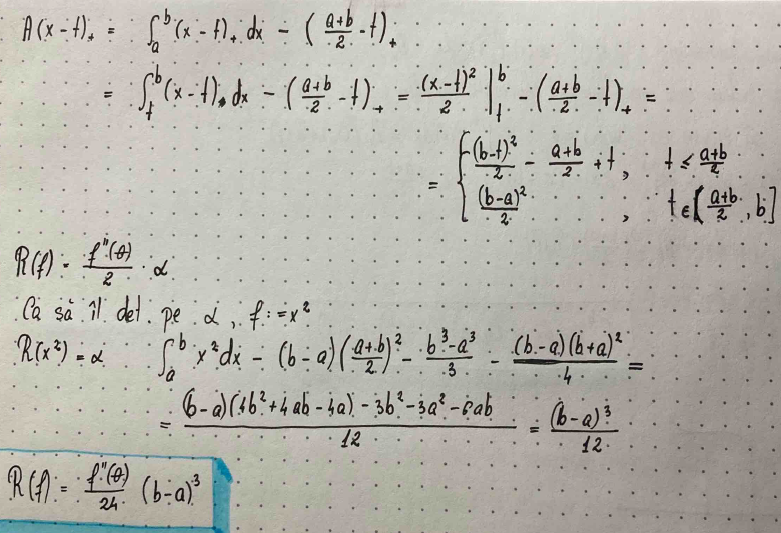 A(x-t)₊ = ∫ₐᵇ (x-t)₊ dx - ((a+b)/2 - t)₊
= ∫ₜᵇ (x-t) dx - ((a+b)/2 - t)₊ = (x-t)²/2 |ₜᵇ - ((a+b)/2 - t)₊ =
= { (b-t)²/2 - (a+b)/2 + t, t ≤ (a+b)/2
(b-a)²/2, t ∈ [(a+b)/2, b]
R(f) = f''(θ)/2 · α
Ca să îl det. pe α, f := x²
R(x²) = α ∫ₐᵇ x² dx - (b-a)((a+b)/2)² - (b³-a³)/3 - (b-a)(b+a)²/4 =
= (b-a)(4b²+4ab-4a) - 3b²-3a²-6ab/12 = (b-a)³/12
R(f) = f''(θ)/24 (b-a)³